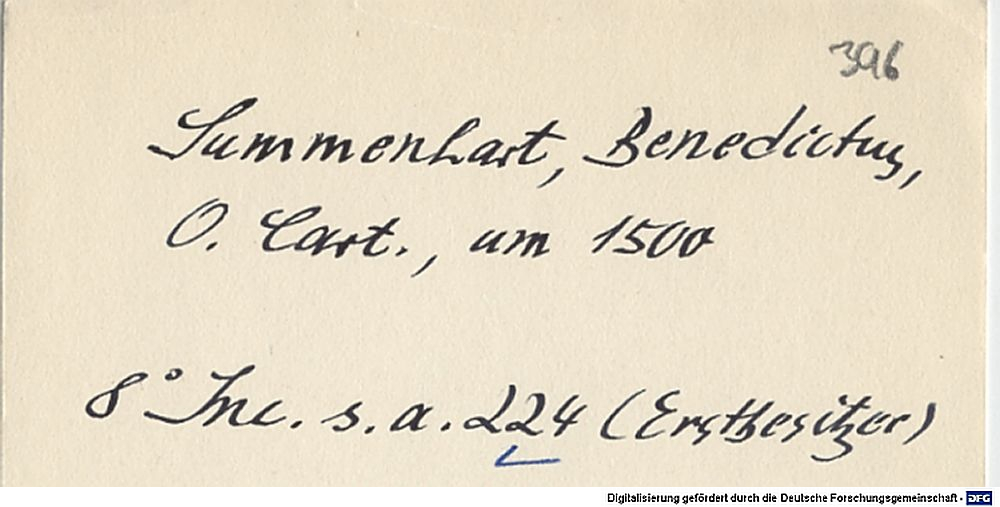 396
Summenhart, Benedictus,
O. Cart., um 1500
8° Inc. s. a. 224 (Erstbesitzer)
Digitalisierung gefördert durch die Deutsche Forschungsgemeinschaft - DFG